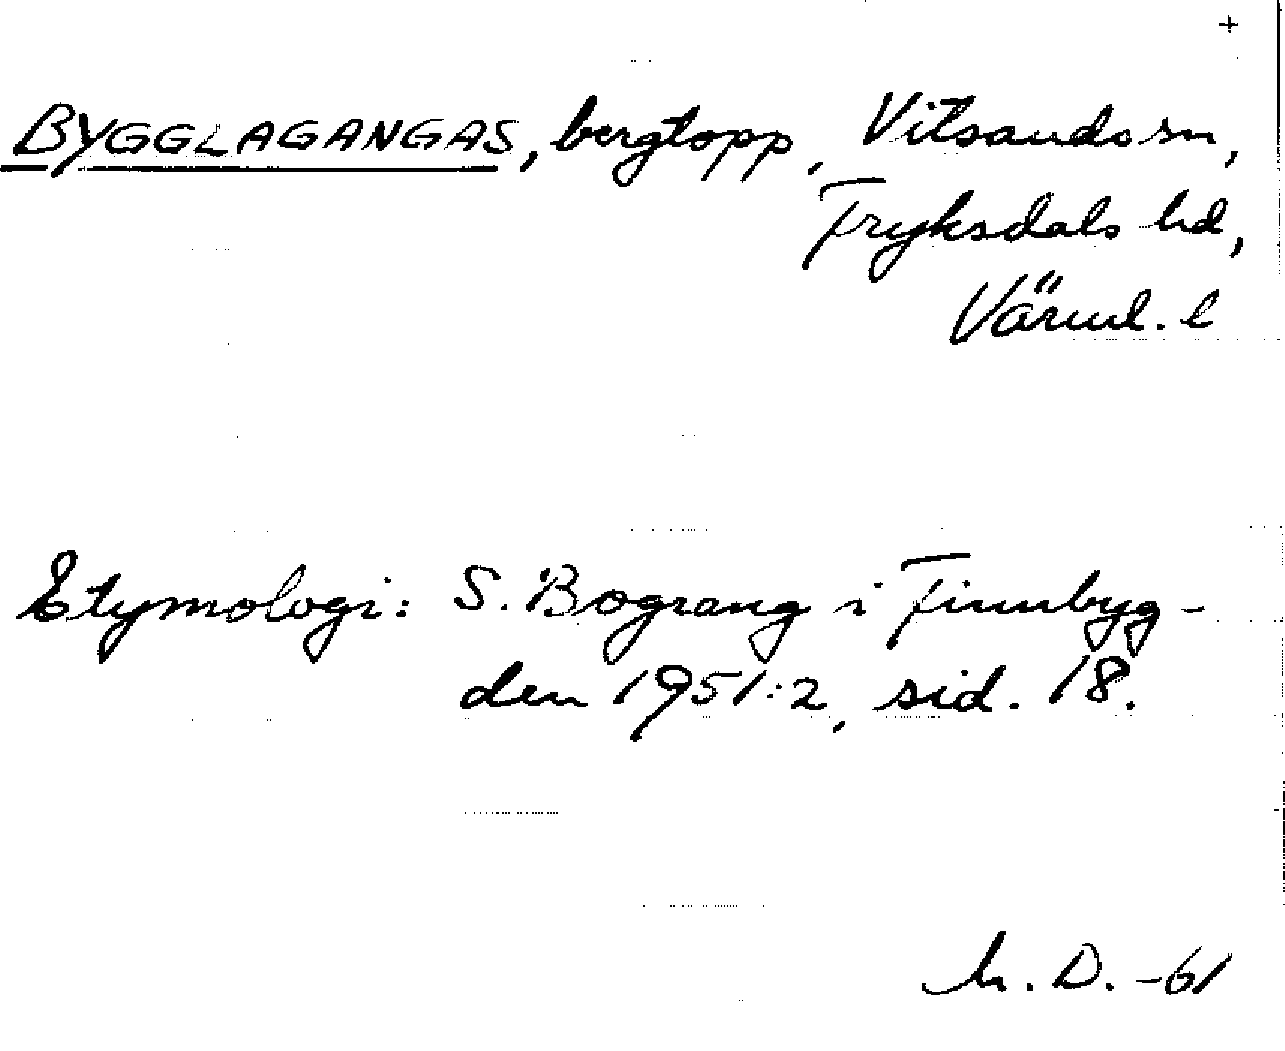 +
BYGGLAGANGAS, bergtopp, Vitsands sn,
Fryksdals hd,
Värml. l
Etymologi: S. Bograng i Finnbyg-
den 1951:2, sid. 18.
D. -61